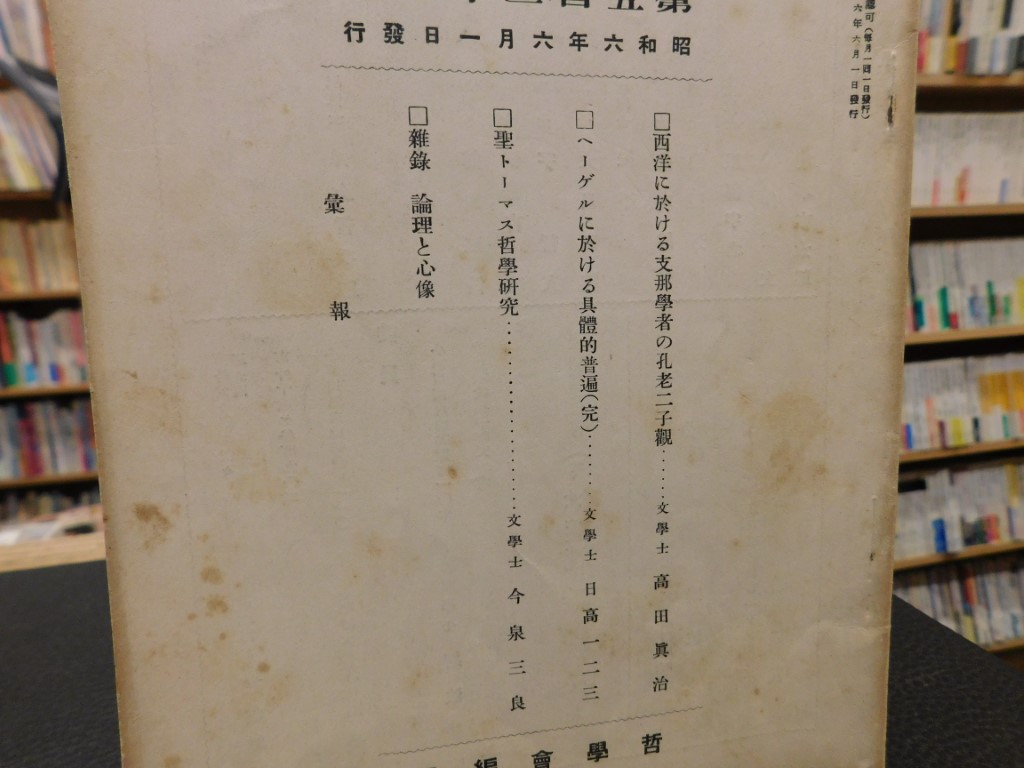 認可(每月一回一日發行)
六年六月一日發行
昭和六年六月一日發行
□西洋に於ける支那學者の孔老二子觀……文學士 高田眞治
□ヘーゲルに於ける具體的普遍(完)……文學士 日高一二三
□聖トーマス哲學硏究………………文學士 今泉三良
□雜錄 論理と心像
彙報
哲學會編